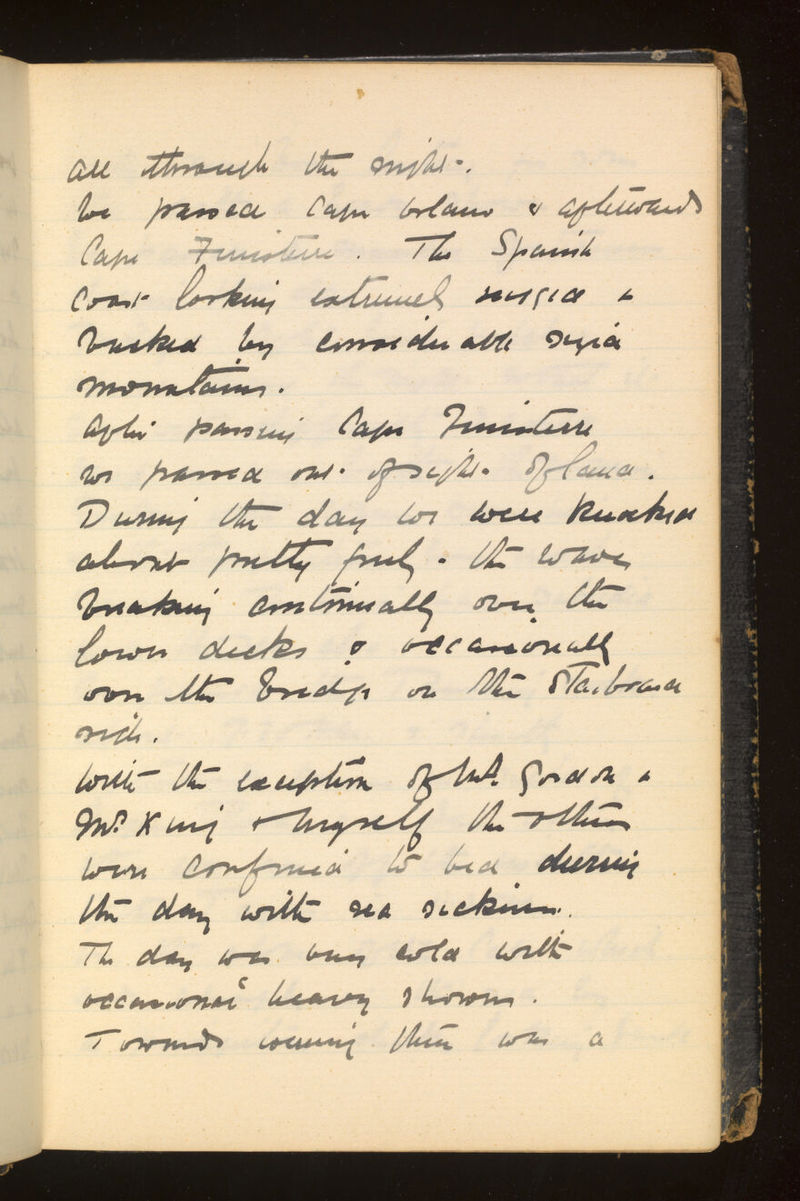 all through the night.
We passed Cape & afterwards
Cape Finisterre. The Spanish
coast looking extremely rugged &
backed by considerable
mountains.
After passing Cape Finisterre
we passed out of sight of land.
During the day we were knocked
about pretty freely. the waves
breaking continually over the
lower decks & occasionally
over the bridge on the starboard
side.
With the exception of Gordon &
Mrs King & myself the others
were confined to bed during
the day with sea sickness.
The day was very cold with
occasional heavy showers.
Towards evening there was a